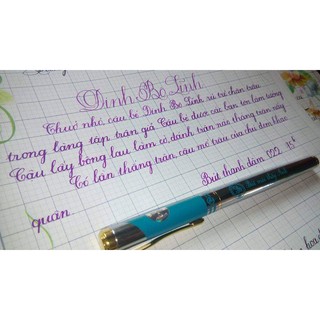 Đinh Bộ Lĩnh
Thuở nhỏ, cậu bé Đinh Bộ Lĩnh rủ trẻ chăn trâu
trong làng tập trận giả. Cậu bé được các bạn tôn làm tướng.
Cậu lấy bông lau làm cờ, đánh trận nào thắng trận nấy.
Có lần thắng trận, cậu mổ trâu của chú đem khao
quân.
Bút thanh đậm